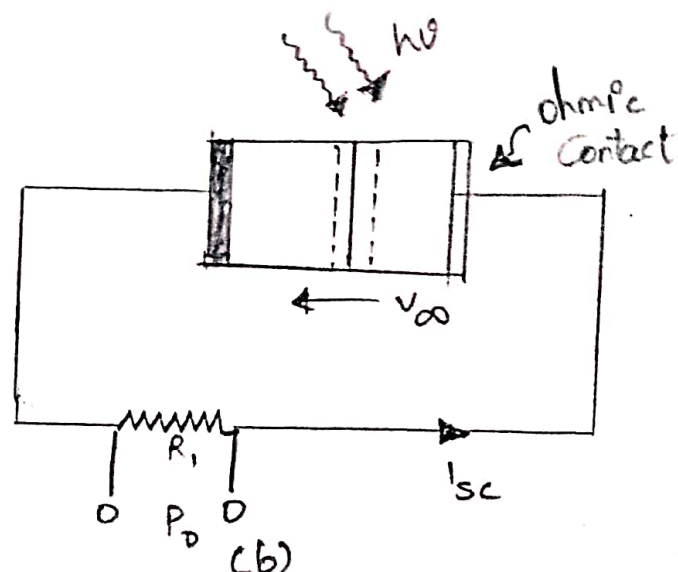 hυ
ohmic
Contact
V∞
R1
Isc
PD
(b)